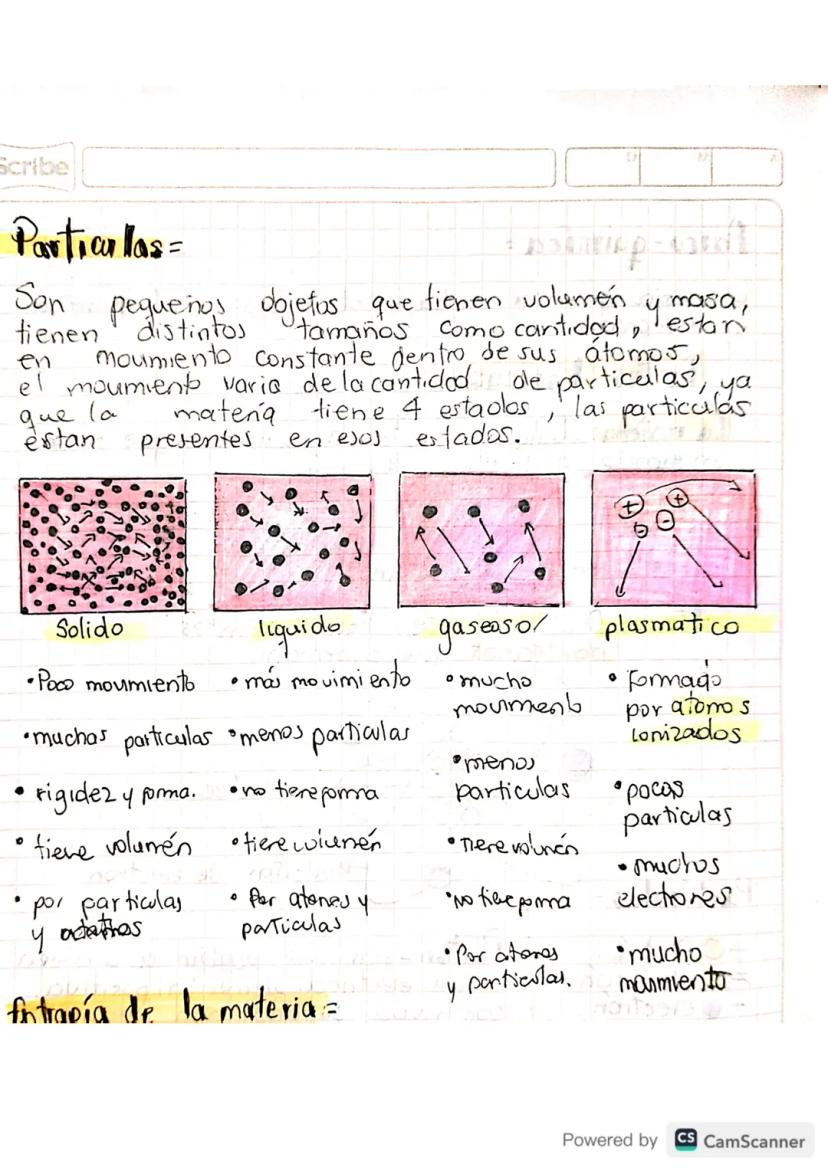 Scribe
Particulas=
Son pequeños objetos que tienen volumén y masa,
tienen distintos tamaños como cantidad, estan
en movimiento constante dentro de sus átomos,
el movimiento varia de la cantidad de particulas, ya
que la materia tiene 4 estados, las particulas
estan presentes en esos estados.
Solido
liquido
gaseoso/
plasmatico
•Poco movimiento
•muchas particulas
• rigidez y forma.
• tieve volumén
• por particulas
y
•más movimiento
•menos particulas
•no tiene forma
•tiene volumén
• Por atomos y
particulas
•mucho
movimento
•menos
particulas
•Tiene volumén
•no tiene forma
•Por atomos
y particulas.
• Formado
por atomos
ionizados
•pocas
particulas
•muchos
electrones
•mucho
movimiento
Entrapía de la materia=
Powered by CS CamScanner